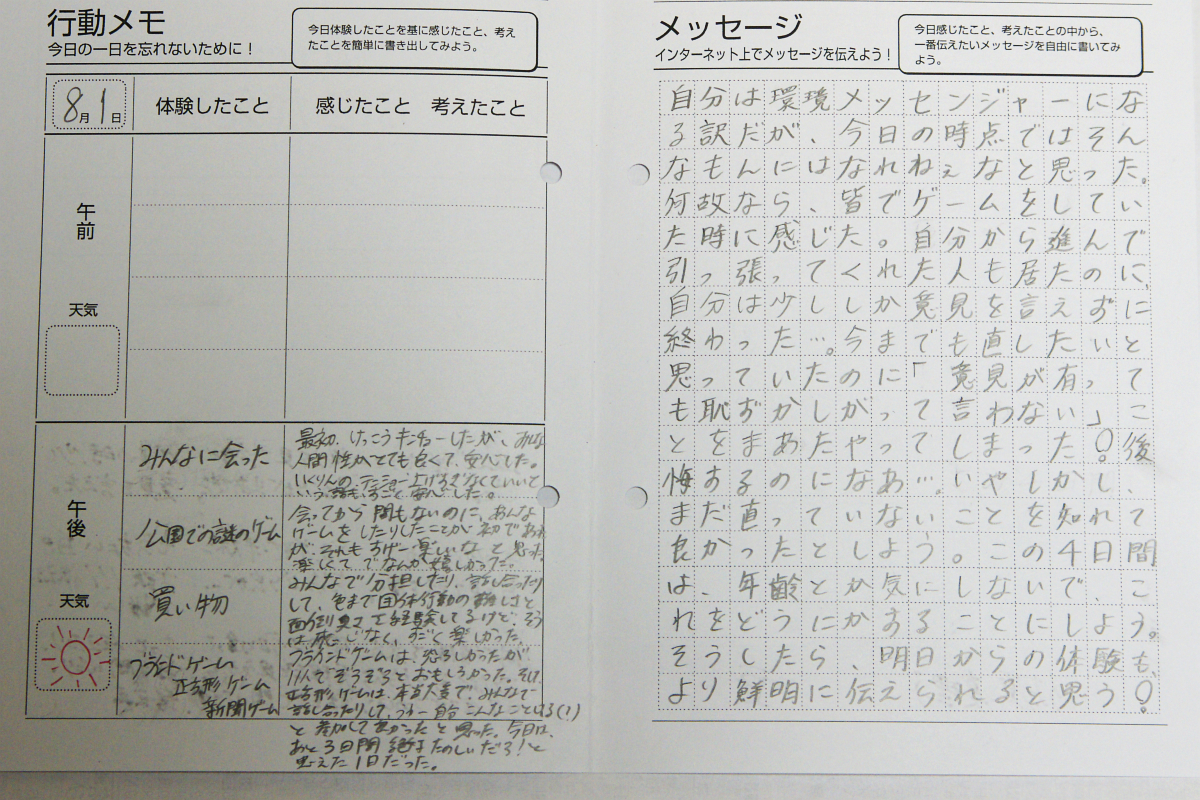 行動メモ
今日の一日を忘れないために！
今日体験したことを基に感じたこと、考え
たことを簡単に書き出してみよう。
8月1日
体験したこと
感じたこと 考えたこと
午前
天気
午後
天気
みんなに会った
最初、けっこうキンチョーしたが、みんな
人間性がとても良くて、安心した。
いくりんの、テンション上げろ
会ってから間もないのに、あんな
ゲームをしたりしたことが初であ
が、それもすげー楽しいなと思
楽しくて、でなんか嬉しかった。
公園での謎のゲーム
買い物
みんなで分担したり、話し合ったり
して、色まで団体行動の難しさと
面倒臭さを経験してるけど、そう
は感じなく、すごく楽しかった。
ブラインドゲーム
正方形ゲーム
新聞ゲーム
ブラインドゲームは、恐ろしかったが
11人でぞろぞろとおもしろかった。
正方形ゲームは、みんなで
話し合ったりして、うわー自分こんなことしてる(?)
と参加して良かったと思った。今日は、
あと3日間絶対たのしいだろ！と
思えた1日だった。
メッセージ
インターネット上でメッセージを伝えよう！
今日感じたこと、考えたことの中から、
一番伝えたいメッセージを自由に書いてみ
よう。
自分は環境メッセンジャーにな
る訳だが、今日の時点ではそん
なもんにはなれねぇなと思った。
何故なら、皆でゲームをしてい
た時に感じた。自分から進んで
引っ張ってくれた人も居たのに、
自分は少ししか意見を言えずに
終わった…。今までも直したいと
思っていたのに「意見が有って
も恥ずかしがって言わない」こ
とをまあたやってしまった!後
悔するのになあ…。いやしかし、
まだ直っていないことを知れて
良かったとしよう。この4日間
は、年齢とか気にしないで、こ
れをどうにかすることにしよう。
そうしたら、明日からの体験も、
より鮮明に伝えられると思う!